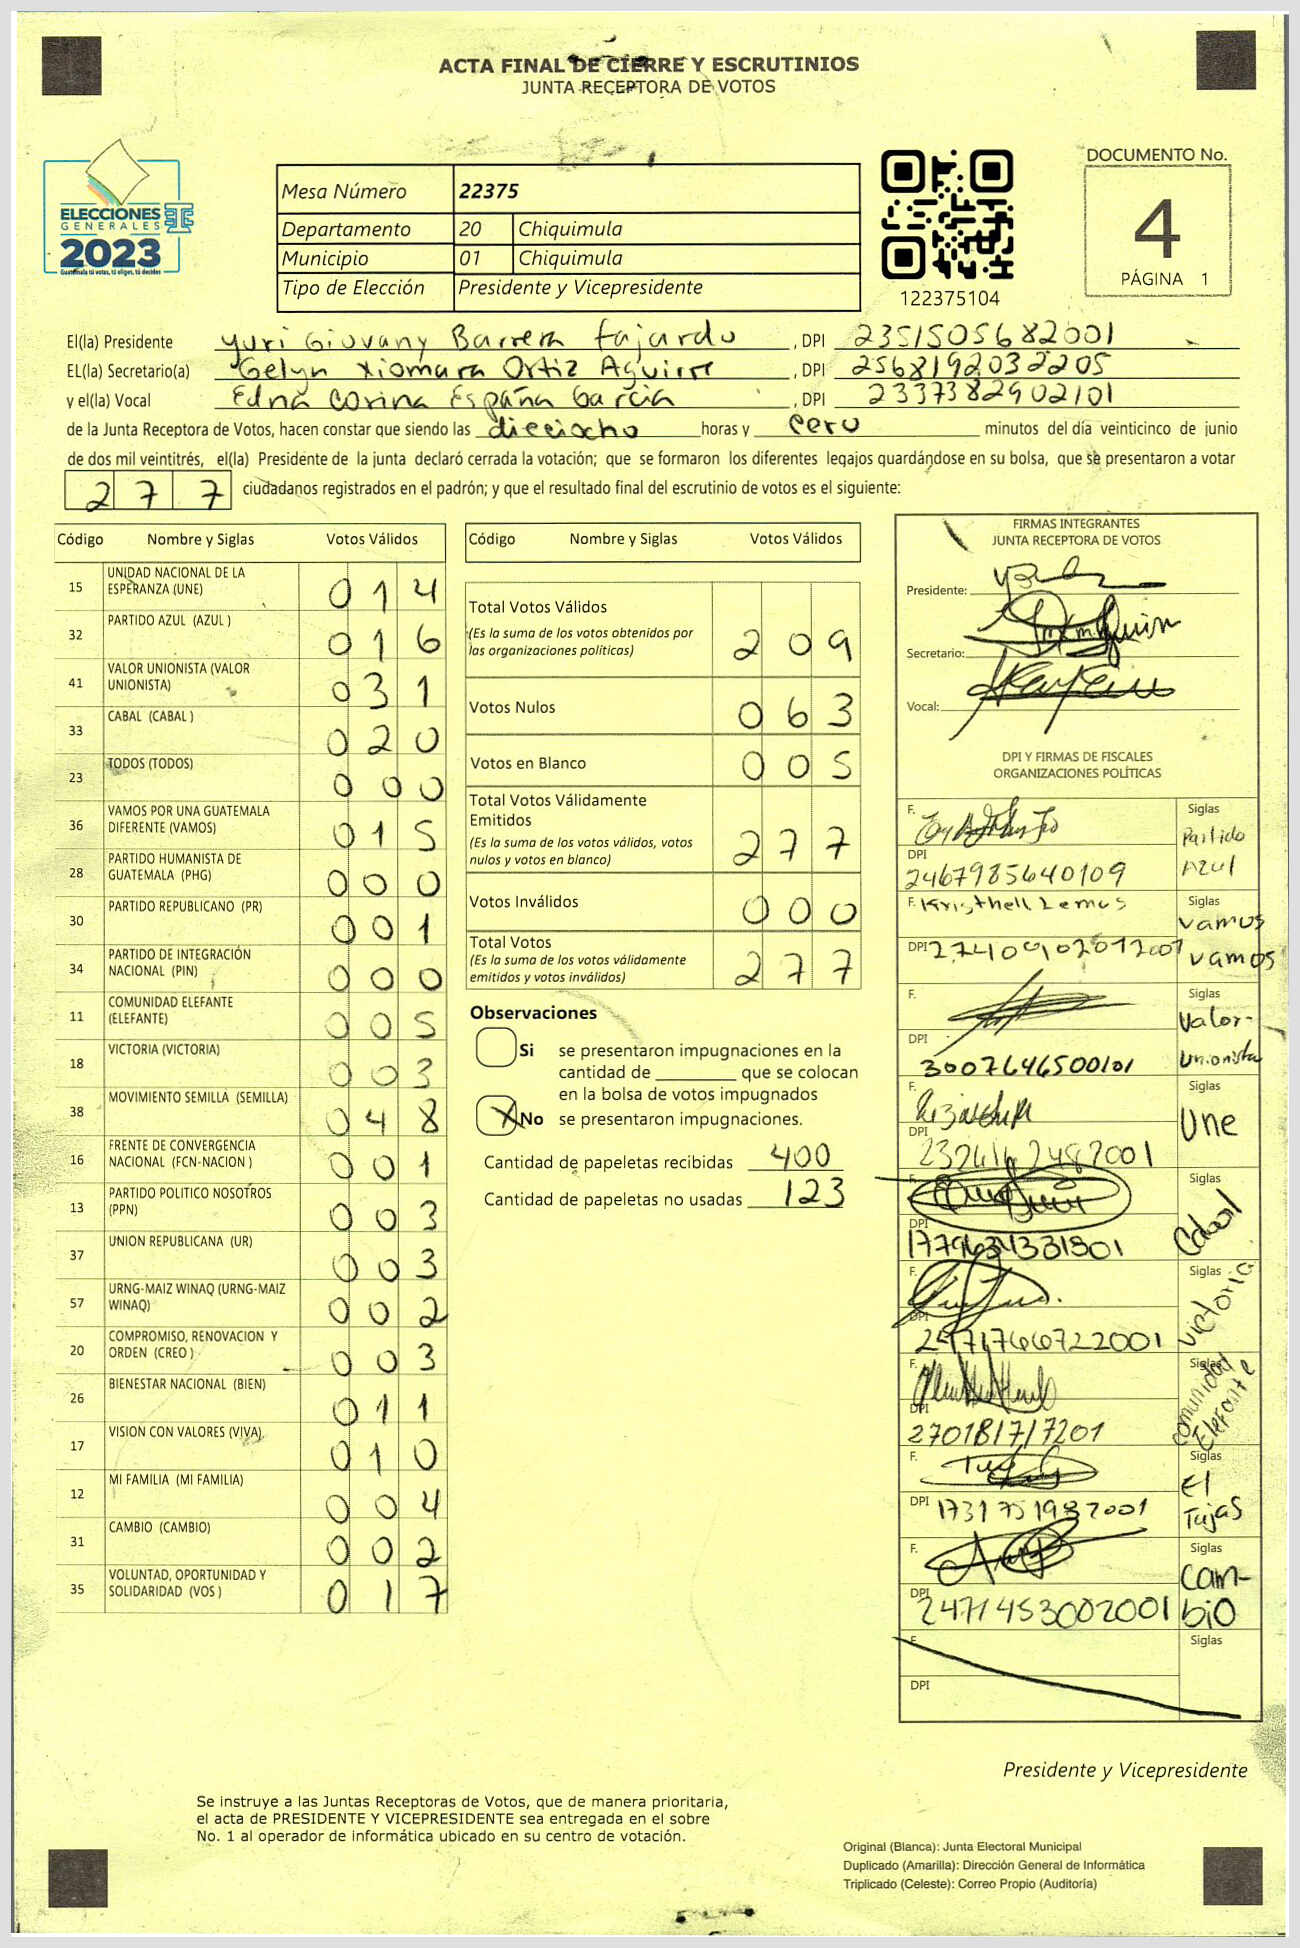 ACTA FINAL DE CIERRE Y ESCRUTINIOS
JUNTA RECEPTORA DE VOTOS
ELECCIONES
GENERALES
2023
Guatemala tú votas, tú eliges, tú decides
Mesa Número 22375
Departamento 20 Chiquimula
Municipio 01 Chiquimula
Tipo de Elección Presidente y Vicepresidente
122375104
DOCUMENTO No.
4
PÁGINA 1
El(la) Presidente Yuri Giovany Barrera Fajardo , DPI 2351505682001
EL(la) Secretario(a) Gelyn Xiomara Ortiz Aguirre , DPI 2568192032205
y el(la) Vocal Edna Corina España García , DPI 2337382902101
de la Junta Receptora de Votos, hacen constar que siendo las dieciocho horas y cero minutos del día veinticinco de junio
de dos mil veintitrés, el(la) Presidente de la junta declaró cerrada la votación; que se formaron los diferentes legajos quardándose en su bolsa, que se presentaron a votar
277 ciudadanos registrados en el padrón; y que el resultado final del escrutinio de votos es el siguiente:
Código Nombre y Siglas Votos Válidos
15 UNIDAD NACIONAL DE LA ESPERANZA (UNE) 014
32 PARTIDO AZUL (AZUL ) 016
41 VALOR UNIONISTA (VALOR UNIONISTA) 031
33 CABAL (CABAL ) 020
23 TODOS (TODOS) 000
36 VAMOS POR UNA GUATEMALA DIFERENTE (VAMOS) 015
28 PARTIDO HUMANISTA DE GUATEMALA (PHG) 000
30 PARTIDO REPUBLICANO (PR) 001
34 PARTIDO DE INTEGRACIÓN NACIONAL (PIN) 000
11 COMUNIDAD ELEFANTE (ELEFANTE) 005
18 VICTORIA (VICTORIA) 003
38 MOVIMIENTO SEMILLA (SEMILLA) 048
16 FRENTE DE CONVERGENCIA NACIONAL (FCN-NACION ) 001
13 PARTIDO POLITICO NOSOTROS (PPN) 003
37 UNION REPUBLICANA (UR) 003
57 URNG-MAIZ WINAQ (URNG-MAIZ WINAQ) 002
20 COMPROMISO, RENOVACION Y ORDEN (CREO ) 003
26 BIENESTAR NACIONAL (BIEN) 011
17 VISION CON VALORES (VIVA) 010
12 MI FAMILIA (MI FAMILIA) 004
31 CAMBIO (CAMBIO) 002
35 VOLUNTAD, OPORTUNIDAD Y SOLIDARIDAD (VOS ) 017
Código Nombre y Siglas Votos Válidos
Total Votos Válidos
(Es la suma de los votos obtenidos por
las organizaciones políticas) 209
Votos Nulos 063
Votos en Blanco 005
Total Votos Válidamente
Emitidos
(Es la suma de los votos válidos, votos
nulos y votos en blanco) 277
Votos Inválidos 000
Total Votos
(Es la suma de los votos válidamente
emitidos y votos inválidos) 277
Observaciones
Si se presentaron impugnaciones en la
cantidad de ________ que se colocan
en la bolsa de votos impugnados
X No se presentaron impugnaciones.
Cantidad de papeletas recibidas 400
Cantidad de papeletas no usadas 123
FIRMAS INTEGRANTES
JUNTA RECEPTORA DE VOTOS
Presidente:
Secretario:
Vocal:
DPI Y FIRMAS DE FISCALES
ORGANIZACIONES POLÍTICAS
F. Siglas Partido Azul
DPI 2467985640109
F. Kristhell Lemus Siglas Vamos
DPI vamos
F. Siglas Valor-
DPI 3007646500101 Unionista
F. Siglas Une
DPI
F. Siglas Cabal
DPI
F. Siglas Victoria
DPI
F. Siglas comunidad Elefante
DPI
F. Siglas El
DPI
F. Siglas Cam-
DPI 2471453002001 bio
F. Siglas
DPI
Presidente y Vicepresidente
Se instruye a las Juntas Receptoras de Votos, que de manera prioritaria,
el acta de PRESIDENTE Y VICEPRESIDENTE sea entregada en el sobre
No. 1 al operador de informática ubicado en su centro de votación.
Original (Blanca): Junta Electoral Municipal
Duplicado (Amarilla): Dirección General de Informática
Triplicado (Celeste): Correo Propio (Auditoría)